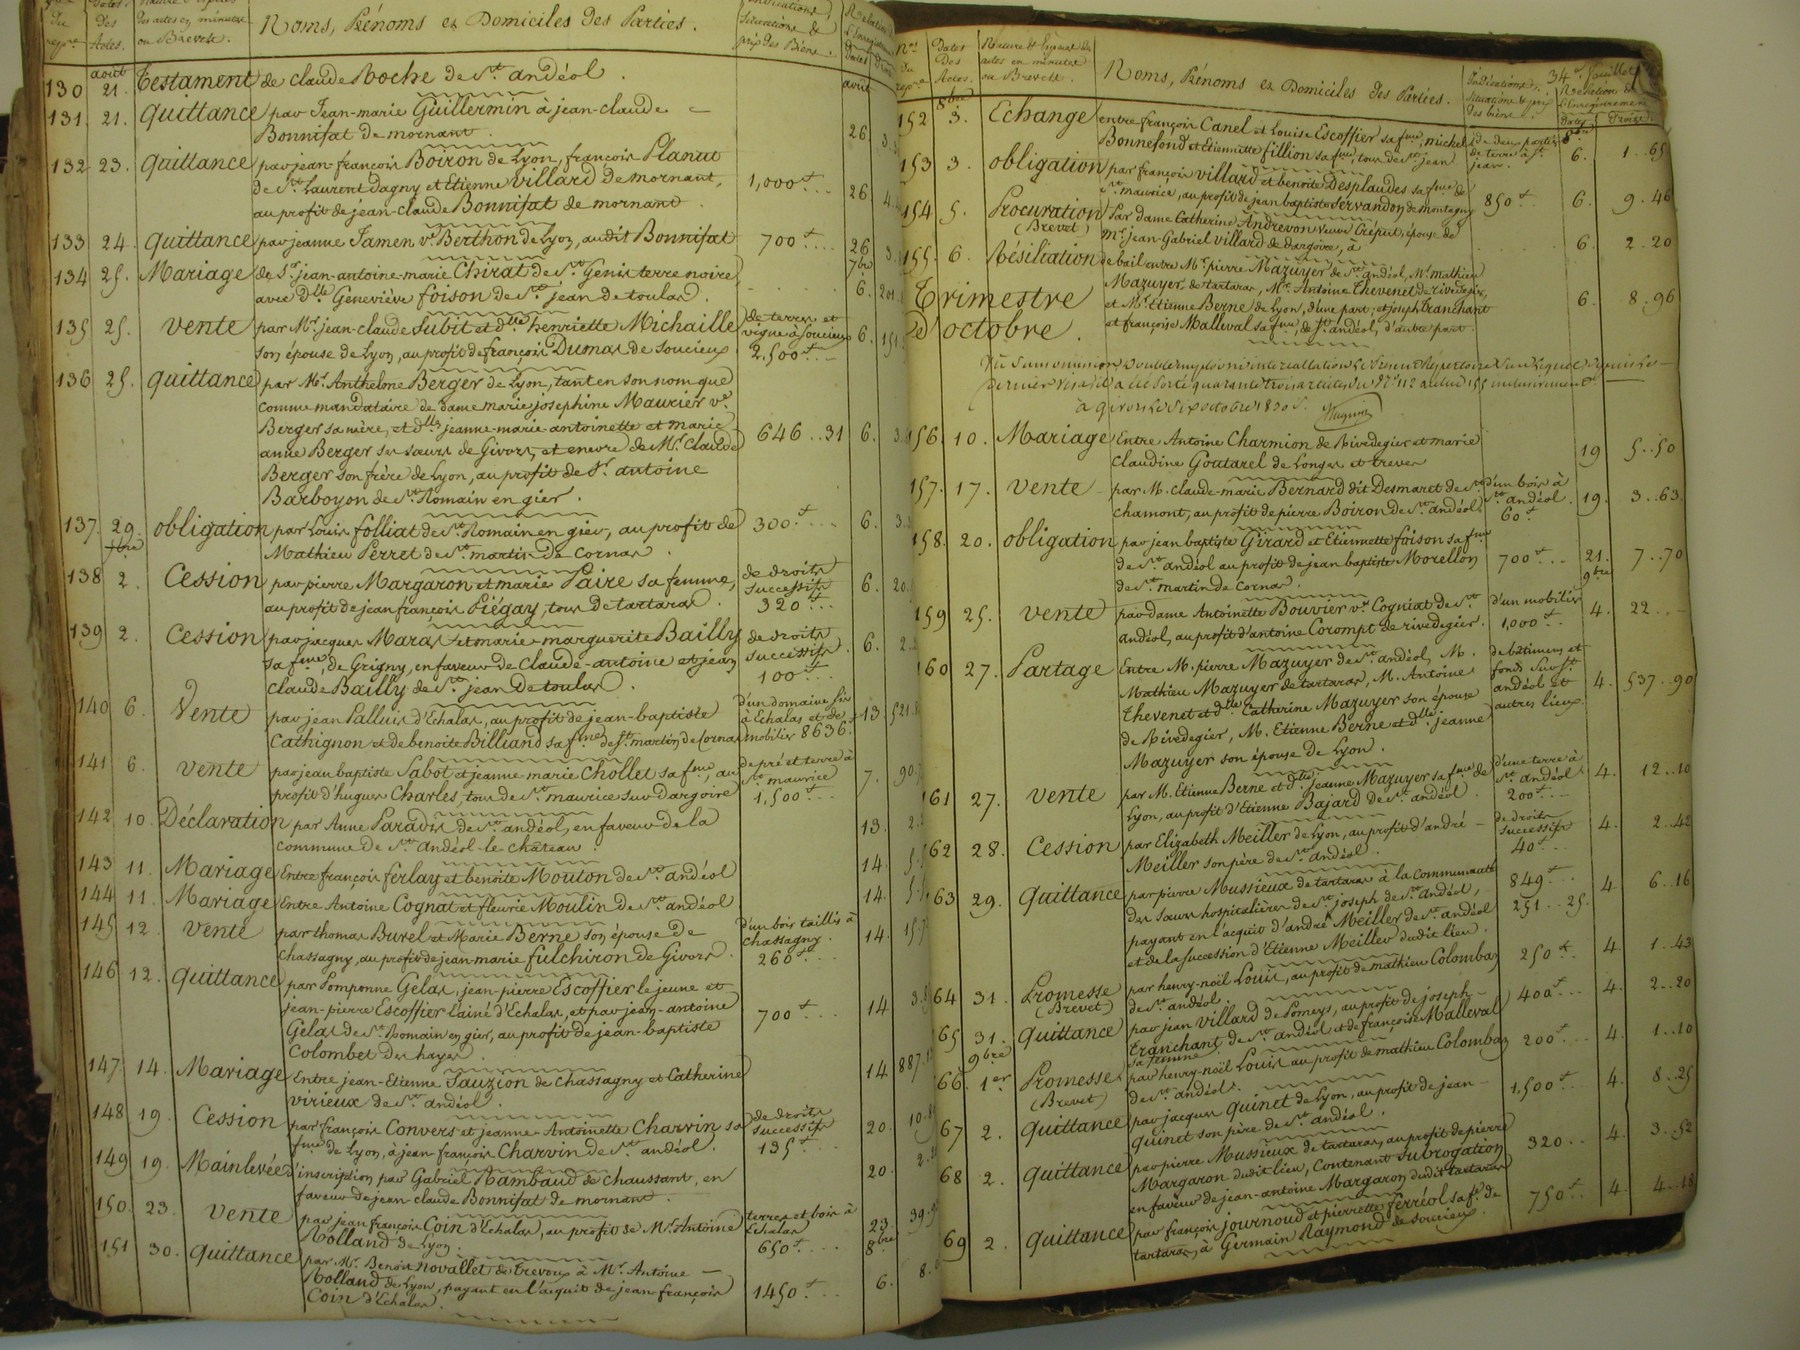 Noms, Prénoms et Domiciles des Parties.
130 août 21. Testament de claude Roche de St. andéol.
131. 21. quittance par Jean-marie Guillermin à jean-claude
Bonnifat de mornant. 26
132 23. Quittance par jean-françois Boiron de Lyon, françois Planut
de St. Laurent Dagny et Etienne villard de mornant, 1,000
au profit de jean-claude Bonnifat de mornant. 26
133 24. quittance par jeanne Jamen ve. Berthon de Lyon, audit Bonnifat 700 26
134 25. Mariage de Sr. jean-antoine-marie Chirat de St. Genis terre noire 7bre
avec Dlle. Geneviève foison de St. jean de toulas. 6.
135 25. vente par Mr. jean-claude Subit et dlle. henriette Michaille de terres et
son épouse de Lyon, au profit de françois Dumas de Soucieux. vigne à Soucieux 6.
2,500
136 25. quittance par Mr. Anthelme Berger de Lyon, tant en son nom que
comme mandataire de dame marie josephine Maurier ve.
Berger sa mère, et dlles. jeanne-marie antoinette et marie
anne Berger ses sœurs de Givors, et encore de Mr. Claude 646..31 6.
Berger son frère de Lyon, au profit de Sr. antoine
Barboyon de St. Romain en gier.
137. 29. obligation par Louis folliat de St. Romain en gier, au profit de 300 6.
Mathieu Perret de St. martin de Cornas.
138 2. Cession par pierre Margaron et marie Paire sa femme, de droits
successifs 6.
au profit de jean françois Piégay, tous de tartaras. 320
139 2. Cession par jacques Maras et marie-marguerite Bailly de droits
sa fme., de Grigny, en faveur de Claude-antoine et jean successifs. 6.
Claude Bailly de St. jean de toulas. 100
140 6. Vente par jean Palluis d'Echalas, au profit de jean-baptiste d'un domaine sis
à Echalas et de 13
Cathignon et de benoite Billiand sa fme. de St. martin de Cornas mobilier 8636
141 6. vente par jean baptiste Sabot et jeanne-marie Chollet sa fme., au de pré et terre à
St. maurice 7.
profit d'hugues Charles, tous de St. maurice sur Dargoire 1,500
142 10. Déclaration par Anne Paradis de St. andéol, en faveur de la 13.
commune de St. andéol-le chateau.
143 11. Mariage Entre françois ferlay et benoite Mouton de St. andéol 14.
144 11. Mariage Entre Antoine Cognat et fleurie Moulin de St. andéol 14.
145 12. vente par thomas Burel et Marie Berne son épouse de d'un bois taillis à
chassagny. 14.
Chassagny, au profit de jean-marie fulchiron de Givors. 260
146 12. Quittance par Pomponne Gelas, jean-pierre Escoffier le jeune et
jean-pierre Escoffier l'ainé d'Echalas, et par jean-antoine 700 14
Gelas de St. Romain en gier, au profit de jean-baptiste
Colombet des hayes.
147 14. Mariage Entre jean-Etienne Sauzion de Chassagny et Catherine 14
virieux de St. andéol.
148 19. Cession par françois Convers et jeanne-Antoinette Charvin sa de droits
successifs 20.
fme. de Lyon, à jean-françois Charvin de St. andéol. 135
149 19. Mainlevée d'inscription par Gabriel Rambaud de chaussant, en 20.
faveur de jean-claude Bonnifat de mornant.
150. 23. vente par jean françois Coin d'Echalas, au profit de Mr. Antoine terres et bois à
Echalas 23.
Rolland de Lyon. 650 8bre
151 30. quittance par Mr. Benoit Novallet de trevoux à Mr. Antoine
Rolland de Lyon, payant en l'acquit de jean-françois 1450 6.
Coin d'Echalas.
34e. feuillet
Nos. du Dates des Actes. Noms, Prénoms et Domiciles des Parties.
152 8bre 3. Echange entre françois Canel et Louise Escoffier sa fme., michel
Bonnefond et Etiennette fillion sa fme., tous de St. jean de terre à St. jean. 6. 1..65
153 3. obligation par françois villard et benoite Desplaudes sa fme. de
St. maurice, au profit de jean baptiste Servandon de montagny 850 6. 9..46
154 5. Procuration (Brevet) Par dame Catherine Andrevon veuve Crépet, épouse de
Mr. jean-Gabriel villard de dargoire, à 6. 2..20
155. 6. Résiliation de bail entre Mr. pierre Mazuyer de St. andéol, Mr. mathieu
Mazuyer de tartaras, Mr. Antoine thevenet de rivedegier,
et Mr. Etienne Berne de Lyon, d'une part, et joseph tranchant 6. 8..96
et françoise Malleval sa fme., de St. andéol, d'autre part.
Trimestre
d'octobre.
à Givors le Six octobre 1830
156. 10. Mariage Entre Antoine Charmion de Rivedegier et marie 19 5..50
Claudine Goutarel de Longes et treves
157. 17. vente par M. Claude-marie Bernard dit Desmaret de St. d'un bois à
chamont, au profit de pierre Boiron de St. andéol. St. andéol. 60 19. 3..63.
158. 20. obligation par jean baptiste Girard et Etiennette foison sa fme.
de St. andéol au profit de jean baptiste Morellon 700 21. 7..70
de St. martin de Cornas. 9bre
159 25. vente par dame Antoinette Bouvier ve. Cogniat de St. d'un mobilier 4. 22
andéol, au profit d'antoine Corompt de rivedegier. 1,000
160 27. Partage Entre M. pierre Mazuyer de St. andéol, M. de bâtimens et
Mathieu Mazuyer de tartaras, M. Antoine fonds sur St.
andéol et 4. 537..90
thevenet et dlle. Catharine Mazuyer son épouse autres lieux.
de Rivedegier, M. Etienne Berne et dlle. jeanne
Mazuyer son épouse de Lyon.
161 27. vente par M. Etienne Berne et dlle. jeanne Mazuyer sa fme. de d'une terre à
St. andéol 4. 12..10
Lyon, au profit d'Etienne Bajard de St. andéol. 200
62 28. Cession par Elizabeth Meiller de Lyon, au profit d'andré de droits
successifs 4. 2..42
Meiller son père de St. andéol. 40
63 29. Quittance par pierre Mussieux de tartaras à la Communauté 849 4. 6..16
des Sœurs hospitalières de St. joseph de St. andéol, 251..25.
payant en l'acquit d'andré Meiller de St. andéol
et de la succession d'Etienne Meiller dudit lieu.
64 31. Promesse (Brevet) par henry-noël Louis, au profit de mathieu Colombas 250 4. 1..43
de St. andéol.
65 31. Quittance par jean villard de Pomeys, au profit de joseph 400 4. 2..20
tranchant de St. andéol et de françoise Malleval
sa femme
66. 9bre 1er Promesse (Brevet) par henry-noël Louis au profit de mathieu Colombas 200 4. 1..10
de St. andéol.
67 2. Quittance par jacques Quinet de Lyon, au profit de jean 1,500 4. 8..25
Quinet son père de St. andéol.
68 2. Quittance par pierre Mussieux de tartaras, au profit de pierre
Margaron dudit lieu, Contenant Subrogation 320 4. 3..52
en faveur de jean-antoine Margaron dudit tartaras
69 2. Quittance par françois journoud et pierrette ferréol sa fe. de 750 4. 4..18
tartaras, à Germain Raymond de Soucieux.